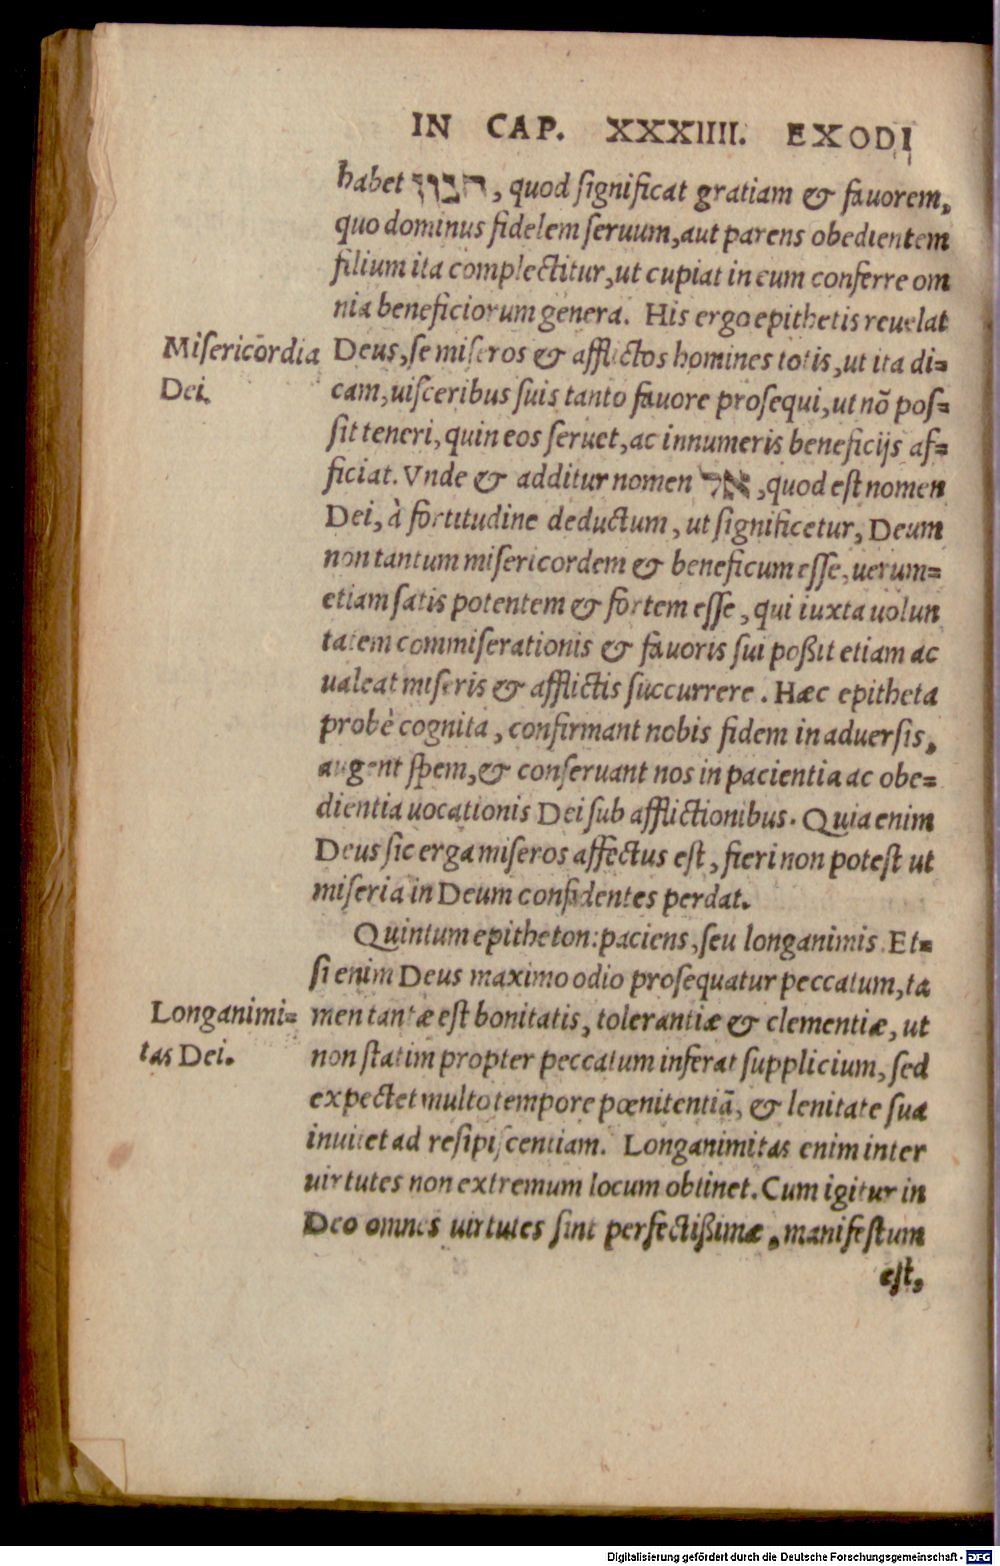 IN CAP. XXXIIII. EXODI
habet חנון, quod significat gratiam & fauorem,
quo dominus fidelem seruum, aut parens obedientem
filium ita complectitur, ut cupiat in eum conferre om
nia beneficiorum genera. His ergo epithetis reuelat
Misericordia Deus, se miseros & afflictos homines totis, ut ita di=
Dei. cam, uisceribus suis tanto fauore prosequi, ut nō pos=
sit teneri, quin eos seruet, ac innumeris beneficijs af=
ficiat. Vnde & additur nomen אל, quod est nomen
Dei, à fortitudine deductum, ut significetur, Deum
non tantum misericordem & beneficum esse, uerum=
etiam satis potentem & fortem esse, qui iuxta uolun
tatem commiserationis & fauoris sui poßit etiam ac
ualeat miseris & afflictis succurrere. Hæc epitheta
probè cognita, confirmant nobis fidem in aduersis,
augent spem, & conseruant nos in pacientia ac obe=
dientia uocationis Dei sub afflictionibus. Quia enim
Deus sic erga miseros affectus est, fieri non potest ut
miseria in Deum confidentes perdat.
Quintum epitheton: paciens, seu longanimis. Et=
si enim Deus maximo odio prosequatur peccatum, ta
Longanimi= men tantæ est bonitatis, tolerantiæ & clementiæ, ut
tas Dei. non statim propter peccatum inferat supplicium, sed
expectet multo tempore pœnitentiā, & lenitate sua
inuitet ad resipiscentiam. Longanimitas enim inter
uirtutes non extremum locum obtinet. Cum igitur in
Deo omnes uirtutes sint perfectißimæ, manifestum
est,
Digitalisierung gefördert durch die Deutsche Forschungsgemeinschaft - DFG